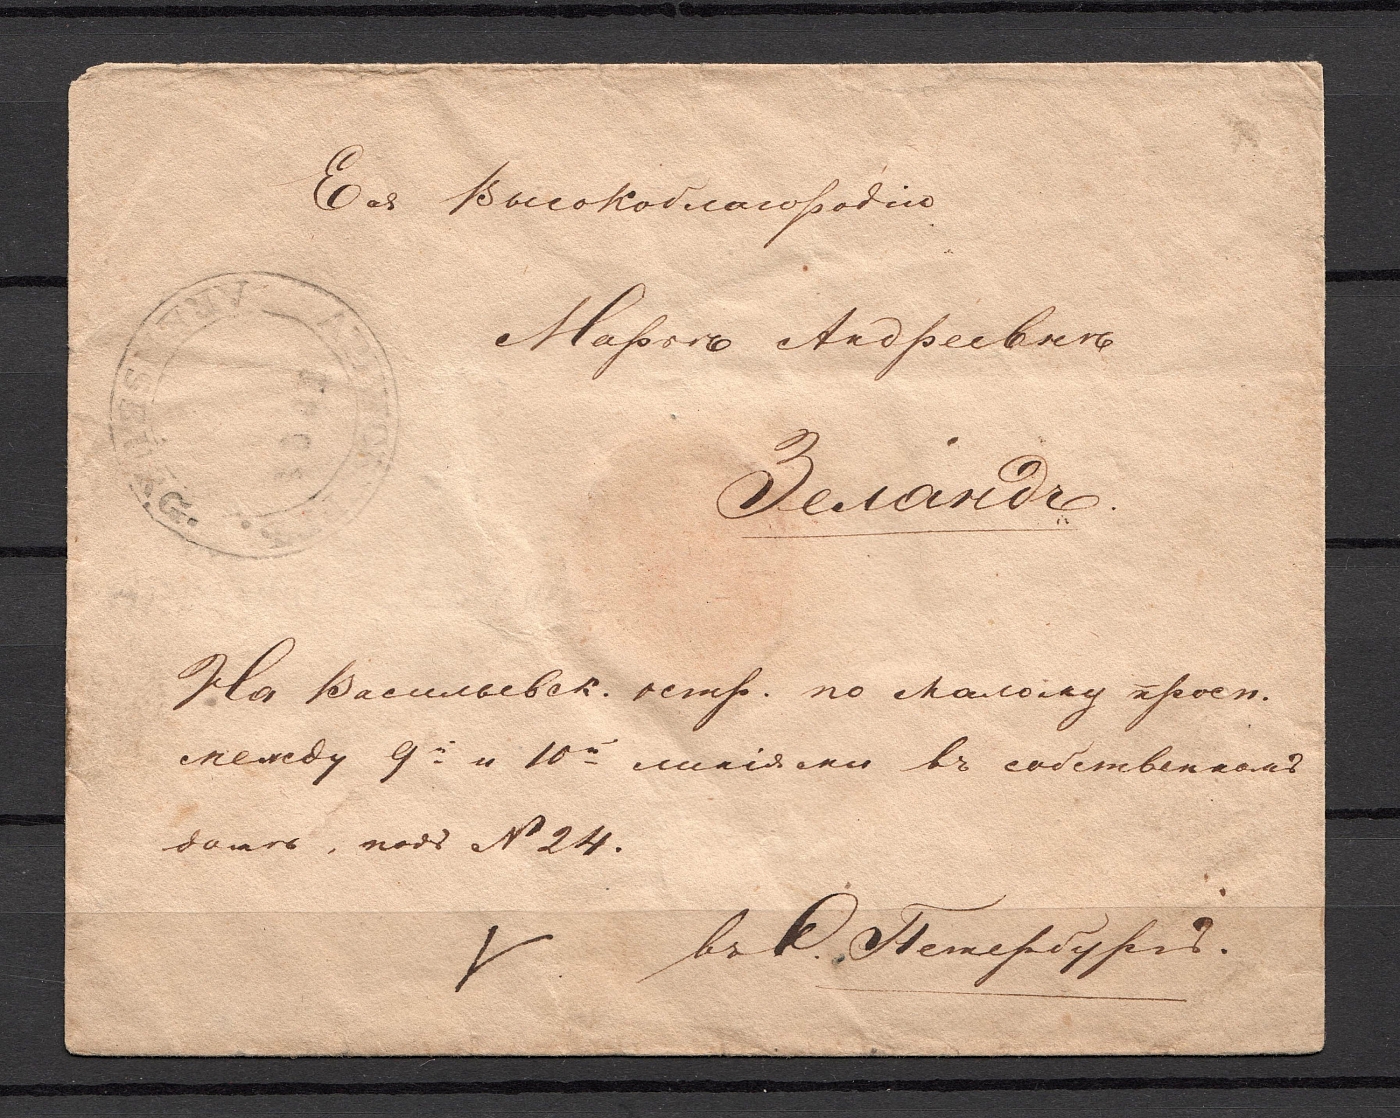 Ея Высокоблагородію
Марьѣ Андреевнѣ
Зеландъ.
На Васильевск. остр. по Малому просп.
между 9й и 10й линіями въ собственномъ
домѣ, подъ № 24.
въ С. Петербургъ.